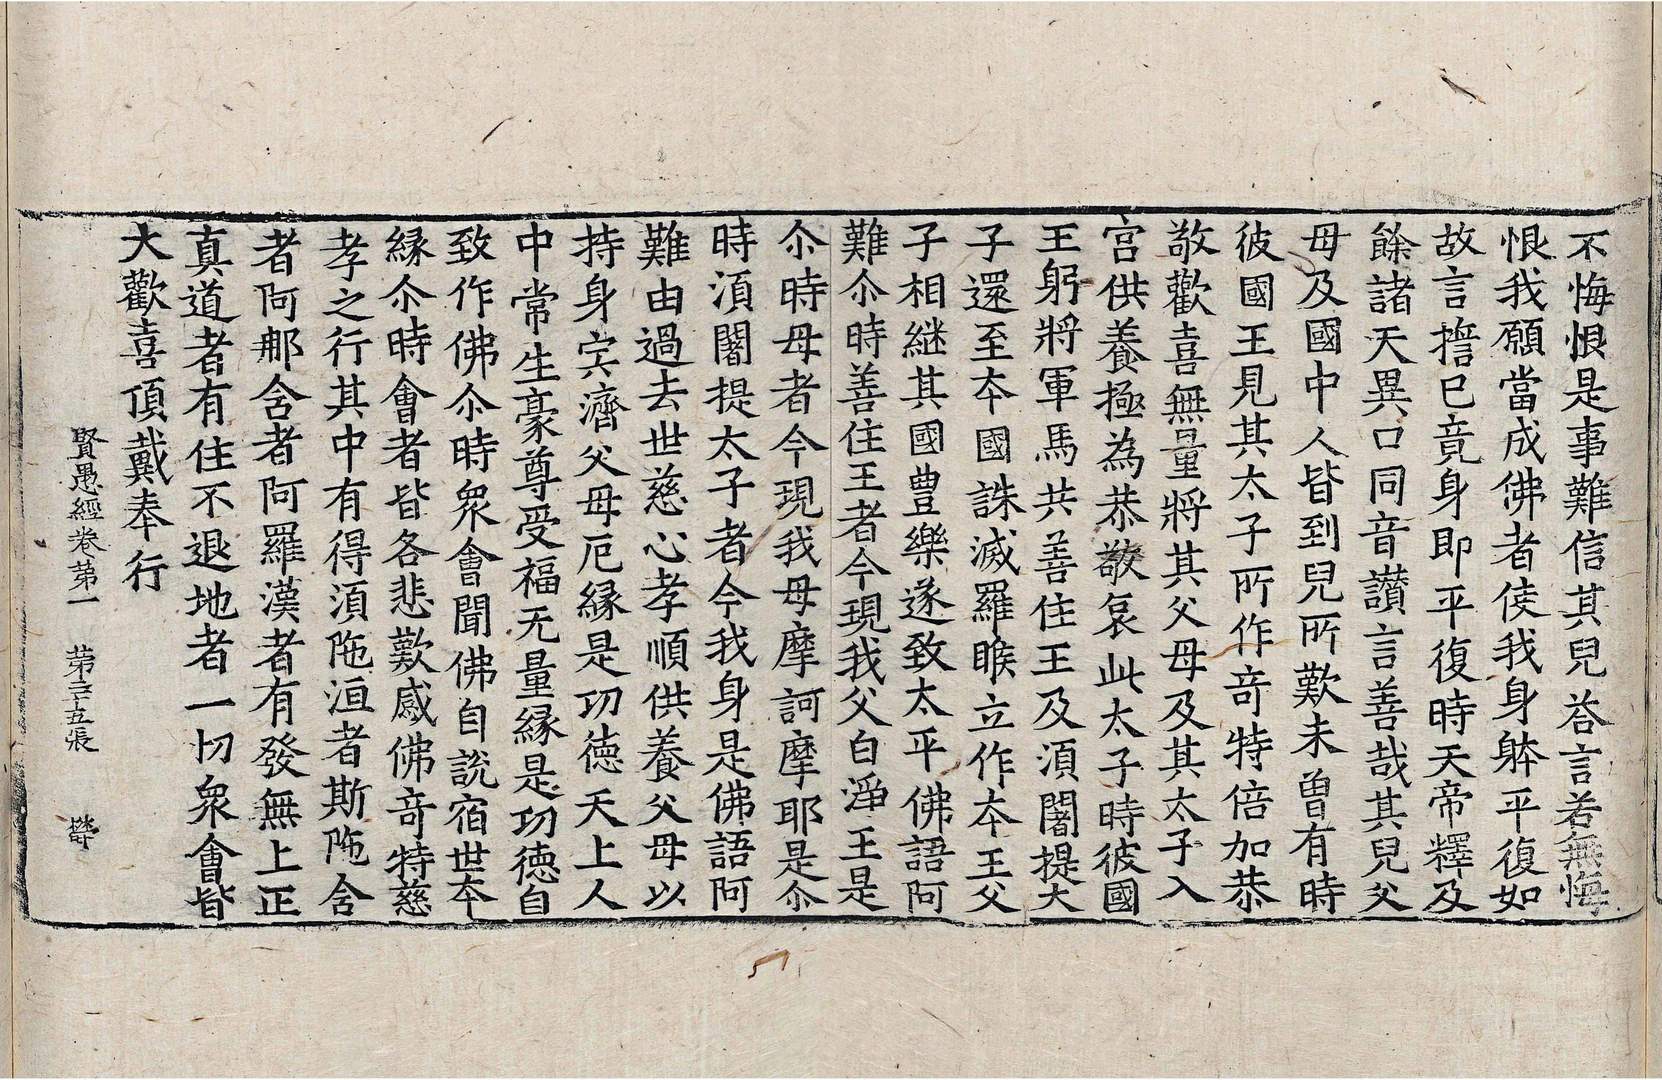 不悔恨是事難信其兒荅言若無悔
恨我願當成佛者使我身躰平復如
故言擔已竟身即平復時天帝釋及
餘諸天異口同音讃言善哉其兒父
母及國中人皆到兒所歎未曽有時
彼國王見其太子所作竒特倍加恭
敬歡喜無量將其父母及其太子入
宫供養極為恭敬哀此太子時彼國
王躬將軍馬共善住王及湏闍提大
子還至夲國誅滅羅睺立作夲王父
子相継其國豊樂遂致太平佛語阿
難尒時善住王者今現我父白淨王是
尒時母者今現我母摩訶摩耶是尒
時湏闍提太子者今我身是佛語阿
難由過去世慈心孝順供養父母以
持身宍濟父母厄縁是功徳天上人
中常生豪尊受福无量縁是功徳自
致作佛尒時衆會聞佛自説宿世夲
縁尒時會者皆各悲歎感佛竒特慈
孝之行其中有得湏陁洹者斯陁含
者阿那含者阿羅漢者有發無上正
真道者有住不退地者一切衆會皆
大歡喜頂戴奉行
賢愚經卷苐一 苐三十五張